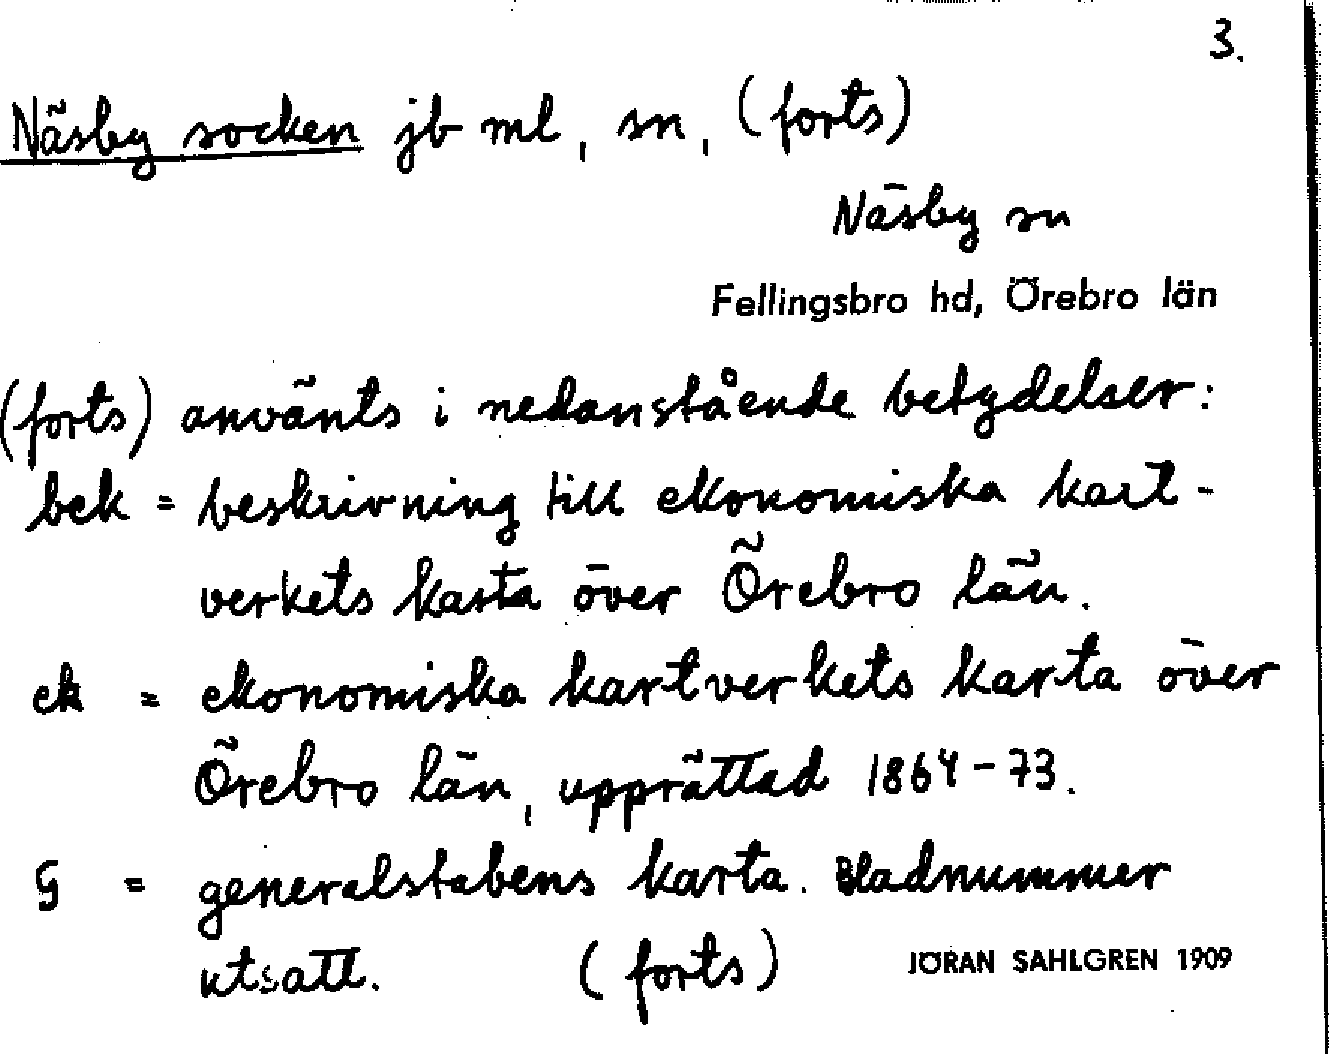 3.
Näsby socken jb ml, sn, (forts)
Näsby sn
Fellingsbro hd, Örebro län
(forts) använts i nedanstående betydelser:
bek = beskrivning till ekonomiska kart-
verkets karta över Örebro län.
ek = ekonomiska kartverkets karta över
Örebro län, upprättad 1864-73.
G = generalstabens karta. Bladnummer
utsatt. (forts)
JÖRAN SAHLGREN 1909